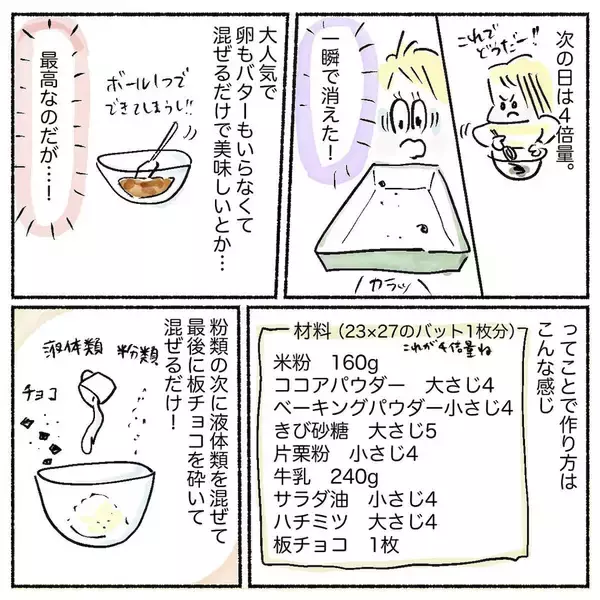 次の日は4倍量。
これで
どうだー!!
一瞬で消えた!
(カラッ)
大人気で
卵もバターもいらなくて
混ぜるだけで美味しいとか…
ボール1つで
できてしまうし!!
最高なのだが…!
ってことで作り方は
こんな感じ
材料(23×27のバット1枚分)
これが4倍量ね
米粉 160g
ココアパウダー 大さじ4
ベーキングパウダー小さじ4
きび砂糖 大さじ5
片栗粉 小さじ4
牛乳 240g
サラダ油 小さじ4
ハチミツ 大さじ4
板チョコ 1枚
粉類の次に液体類を混ぜて
最後に板チョコを砕いて
混ぜるだけ!
粉類
液体類
チョコ